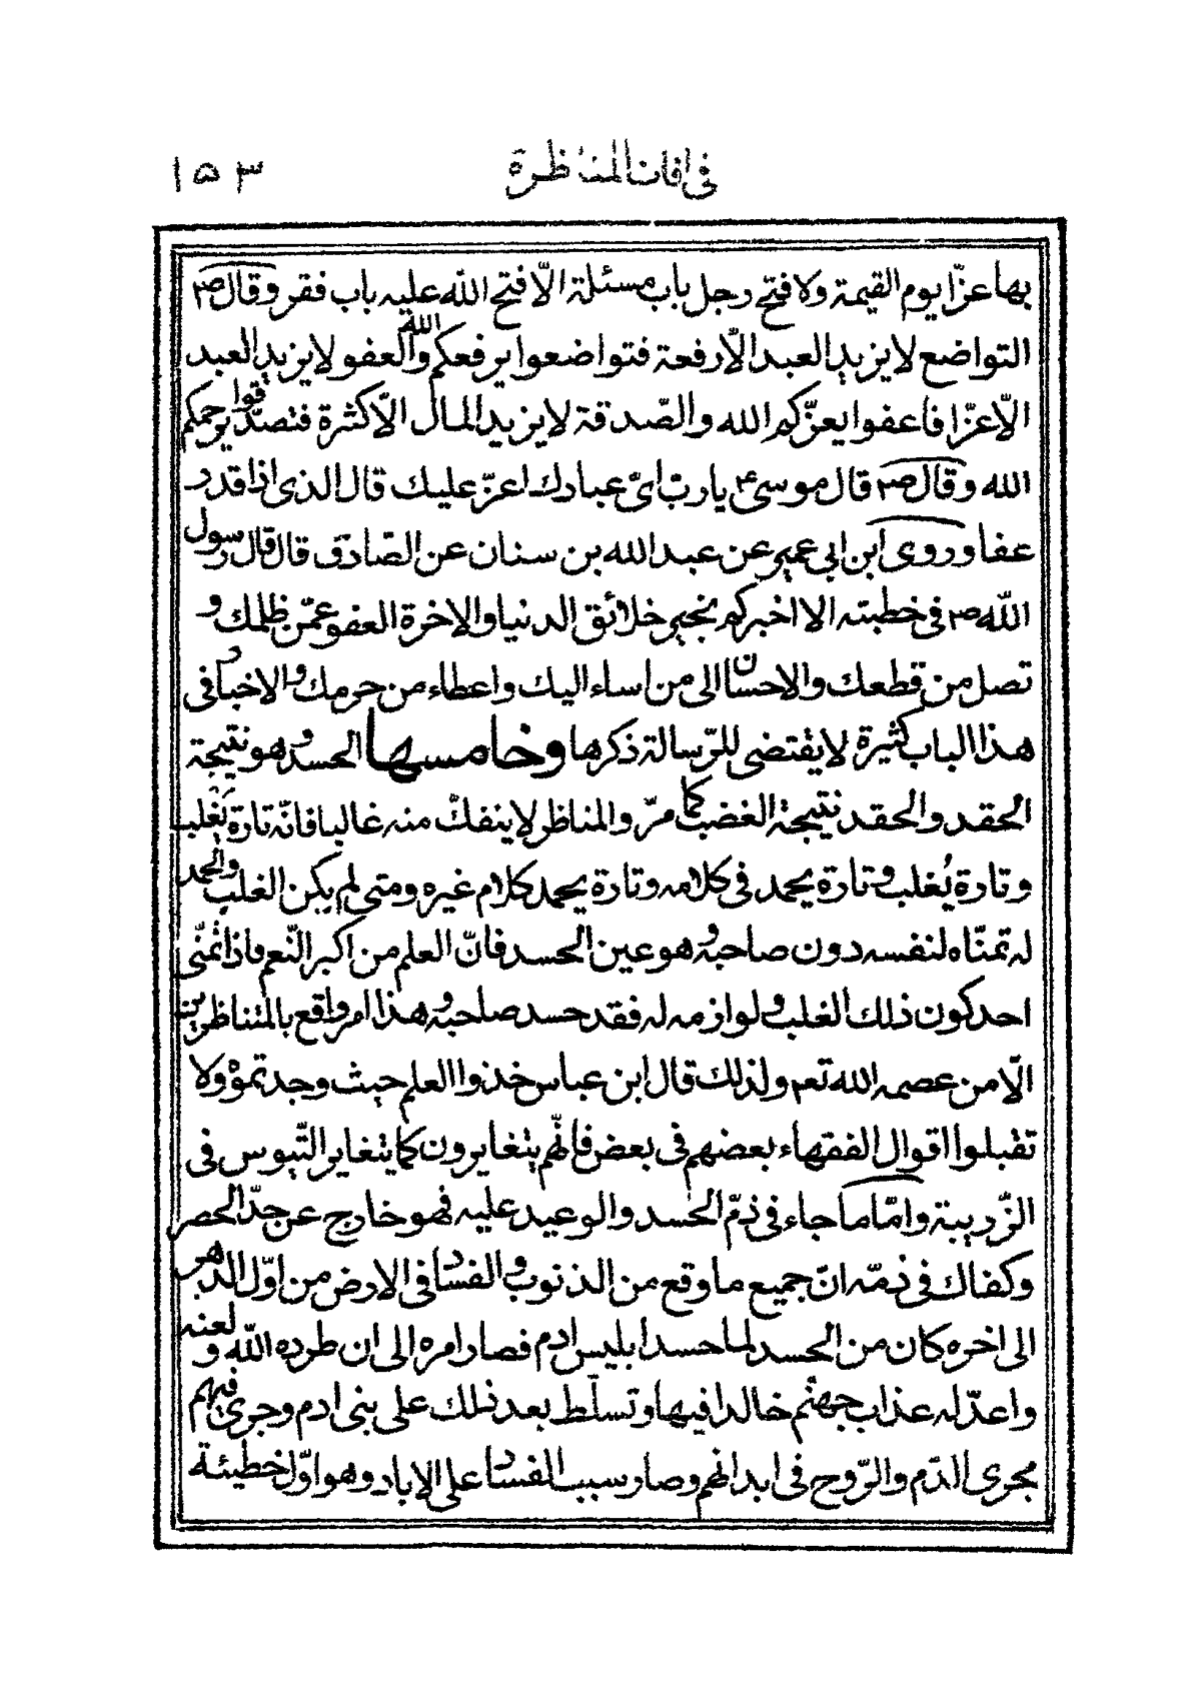 فى افات المناظرة
١٥٣
بها عزّا يوم القيمة ولا فتح رجل باب مسئلة الّا فتح الله عليه باب فقر وقال ص
التواضع لا يزيد العبد الّا رفعة فتواضعوا يرفعكم الله والعفو لا يزيد العبد
الّا عزّا فاعفوا يعزّكم الله والصّدقة لا يزيد المال الّا كثرة فتصدّقوا يرحمكم
الله وقال ص قال موسى ع يا ربّ اىّ عبادك اعزّ عليك قال الذى اذا قدر
عفا وروى ابن ابي عمير عن عبد الله بن سنان عن الصّادق قال قال رسول
الله ص فى خطبته الا اخبركم بخير خلائق الدنيا والاخرة العفو عمّن ظلمك و
تصل من قطعك والاحسان الى من اساء اليك واعطاء من حرمك والاخبار فى
هذا الباب كثيرة لا يقتضى للرّسالة ذكرها وخامسها الحسد وهو نتيجة
الحقد والحقد نتيجة الغضب كما مرّ والمناظر لا ينفكّ منه غالبا فانّه تارة يَغلب
وتارة يُغلب وتارة يحمد فى كلامه وتارة يحمد كلام غيره ومتى لم يكن الغلب والحمد
له تمنّاه لنفسه دون صاحبه وهو عين الحسد فانّ العلم من اكبر النّعم فاذا تمنّى
احد كون ذلك الغلب ولوازمه له فقد حسد صاحبه وهذا امر واقع بالمتناظرين
الّا من عصمه الله تعم ولذلك قال ابن عباس خذوا العلم حيث وجدتموه ولا
تقبلوا اقوال الفقهاء بعضهم فى بعض فانّهم يتغايرون كما يتغاير التّيوس فى
الزّريبة وامّا ما جاء فى ذمّ الحسد والوعيد عليه فهو خارج عن حدّ الحصر
وكفاك فى ذمّه انّ جميع ما وقع من الذنوب والفساد فى الارض من اوّل الدّهر
الى اخره كان من الحسد لما حسد ابليس ادم فصار امره الى ان طرده الله ولعنه
واعدّ له عذاب جهنّم خالدا فيها وتسلّط بعد ذلك على بنى ادم وجرى فيهم
مجرى الدّم والرّوح فى ابدانهم وصار سبب الفساد على الاباد وهو اوّل خطيئة